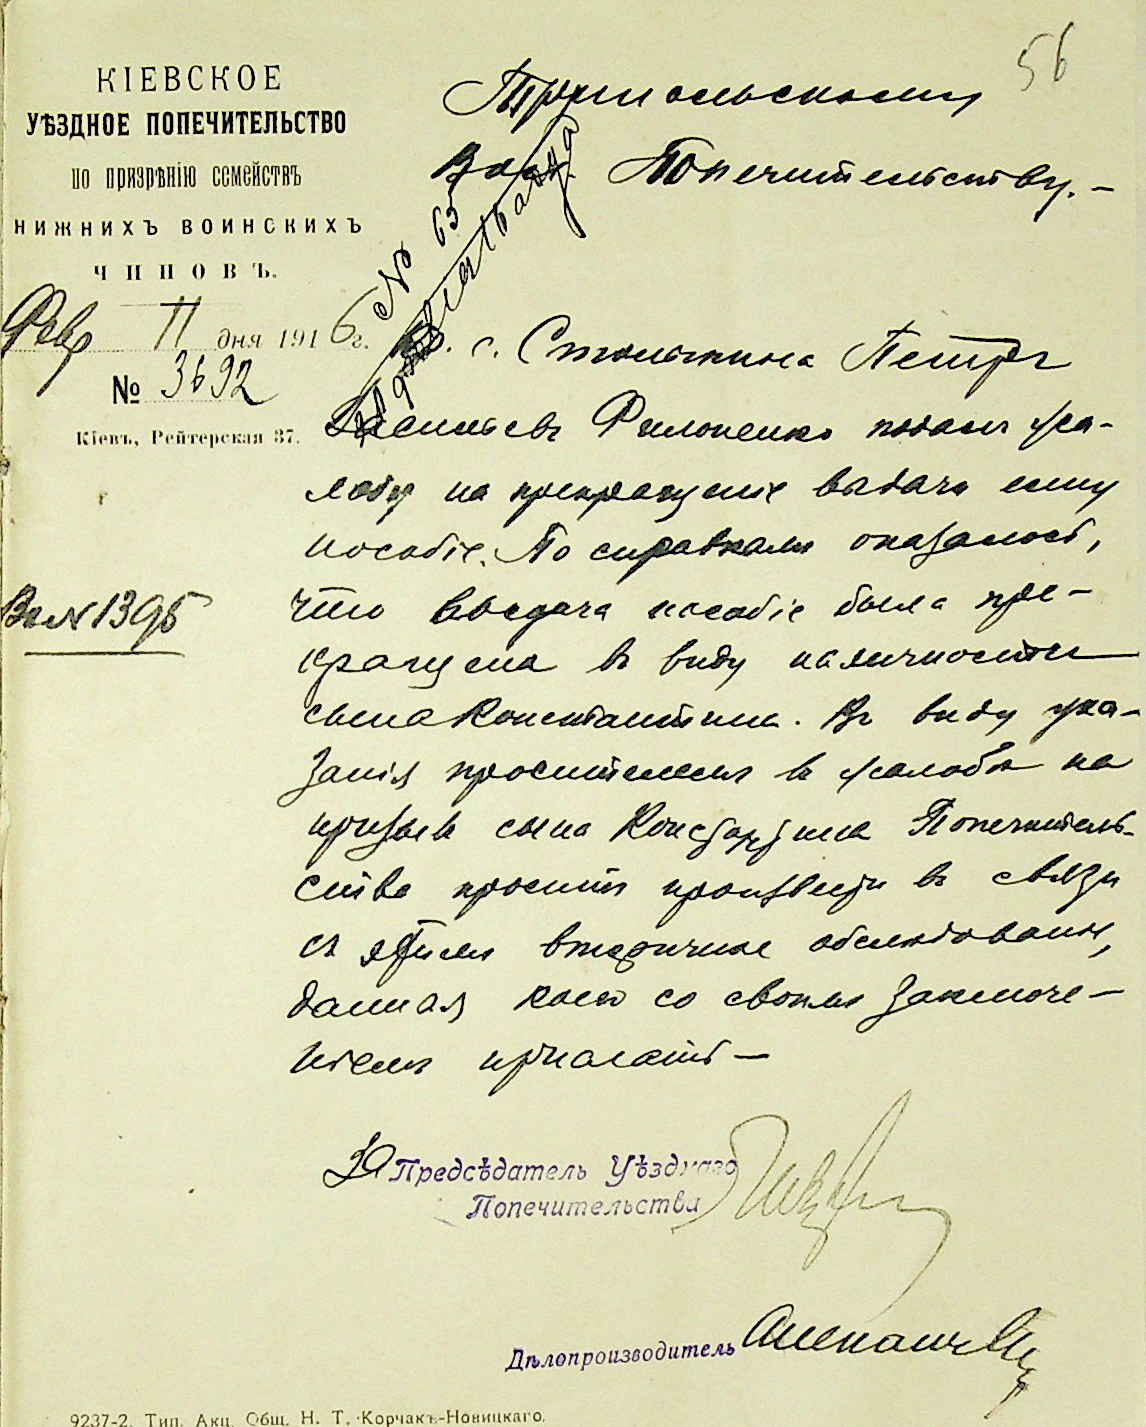 56
КІЕВСКОЕ
УѢЗДНОЕ ПОПЕЧИТЕЛЬСТВО
по призрѣнію семействъ
НИЖНИХЪ ВОИНСКИХЪ
ЧИНОВЪ.
Фев 11 дня 1916 г.
№ 3692
Кіевъ, Рейтерская 37.
Трипольскому
Вол. Попечительству. –
№ 65
Кр. с. Стольтина Петръ
Васильевъ Филоненко подалъ жа-
лобу на прекращеніе выдачи ему
пособіе. По справкамъ оказалось,
что выдача пособіе была пре-
кращена въ виду наличности
сына Константина. Въ виду ука-
занія просителемъ въ жалобѣ на
призывъ сына Константина Попечитель-
ство проситъ произвести въ связи
съ этимъ вторичное обслѣдованіе,
данная коего со своимъ заключе-
ніемъ прислать –
Вх № 1395
За Предсѣдатель Уѣзднаго
Попечительства
Дѣлопроизводитель
9237-2. Тип. Акц. Общ. Н. Т. Корчакъ-Новицкаго.